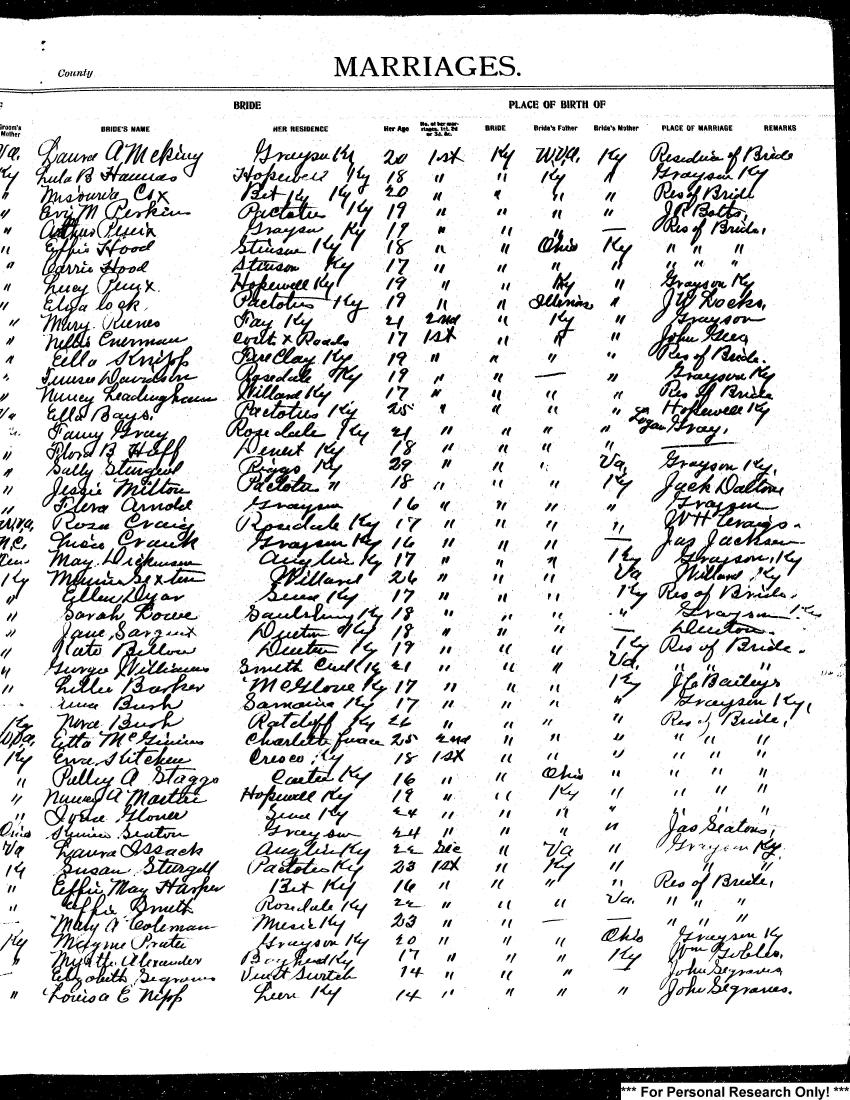 County
MARRIAGES.
BRIDE PLACE OF BIRTH OF
Groom's Mother BRIDE'S NAME HER RESIDENCE Her Age No. of her marriages, 1st, 2d or 3d, &c. BRIDE Bride's Father Bride's Mother PLACE OF MARRIAGE REMARKS
Va. Laura A McKing Grayson Ky 20 1st Ky W.Va. Ky Residence of Bride
Ky Lula B Hannas Hopewell Ky 18 " " Ky " Grayson Ky
" Missouria Cox Bet Ky Ky 20 " " " " Res of Bride
" M Perkins Pactolus Ky 19 " " " " J.R Botts,
" Grayson Ky 19 " " " — Res of Bride,
" Effie Hood Stinson Ky 18 " " Ohio Ky " " "
" Carrie Hood Stinson Ky 17 " " " " " " "
" Lucy Hopewell Ky 19 " " Ky " Grayson Ky
" Lock Pactolus Ky 19 " " Illinois " J W Locks,
" Mary Fay Ky 21 2nd " Ky " Grayson
" Nellie X Roads 17 1st " " " John
" Ella Knipp Fire Clay Ky 19 " " " " Res of Bride.
" Davidson Rosedale Ky 19 " " — " Grayson Ky
" Nancy Leadingham Willard Ky 17 " " " " Res of Bride
Va Ella Bays. Pactolus Ky 25 " " " " Hopewell Ky
" Fanny Gray Rosedale Ky 21 " " " " Logan Gray,
" Flora B Huff Denet Ky 18 " " " ———
" Sally Sturgill Riggs Ky 29 " " " Va. Grayson Ky,
" Jessie Milton Pactolus " 18 " " " Ky Jack Daltons
" Flera Arnold Grayson 16 " " " " Grayson
W.Va. Rosa Craig Rosedale Ky 17 " " " " W H Craigs.
N.C. Grayson Ky 16 " " " — Jas Jackson
May Dickinson Anglin Ky 17 " " " Ky Grayson, Ky
Ky Sexton Willard 26 " " " Va Willard Ky
" Ellen Dyar Ky 17 " " " Ky Res of Bride.
" Sarah Lowe Saulsburg Ky 18 " " " " Grayson Ky
" Jane Sargent Denton Ky 18 " " " — Denton.
" Kate Denton Ky 19 " " " Ky Res of Bride.
" Williams Smith Ky 21 " " " Va. " " "
" Lillie Barker McGlone Ky 17 " " " Ky J L Baileys
Bush Samaria Ky 17 " " " " Grayson Ky,
Ky Nora Bush Ratcliff Ky 26 " " " " Res of Bride,
W.Va. Etta McGinnis Charlotte Furnace 25 2nd " " " " " "
Ky Eva Stitchen Cresco Ky 18 1st " " " " " "
" Polley A Staggs Carter Ky 16 " " Ohio " " " "
" Nancy A Hopewell Ky 19 " " Ky " " " "
" Glover Ky 24 " " " " " " "
Ohio Seaton Grayson 24 " " " " Jas Seatons,
Va Laura Issack Anglin Ky 22 Sec " Va " Grayson Ky.
Ky Susan Sturgill Pactolus Ky 23 1st " Ky " " "
" Effie May Harper Bet Ky 16 " " " " Res of Bride,
" Effie Smith Rosedale Ky 22 " " " Va. " " "
— Mary A Coleman Music Ky 23 " " — — " " "
Ky Mayme Prater Grayson Ky 20 " " " Ohio Grayson Ky
" Myrtle Alexander Ky 17 " " " Ky Wm Gobbles,
— Elizabeth Segraves 14 " " " — John Segraves
" Louisa E Nipp Leon Ky 14 " " " " John Segraves.
*** For Personal Research Only! ***